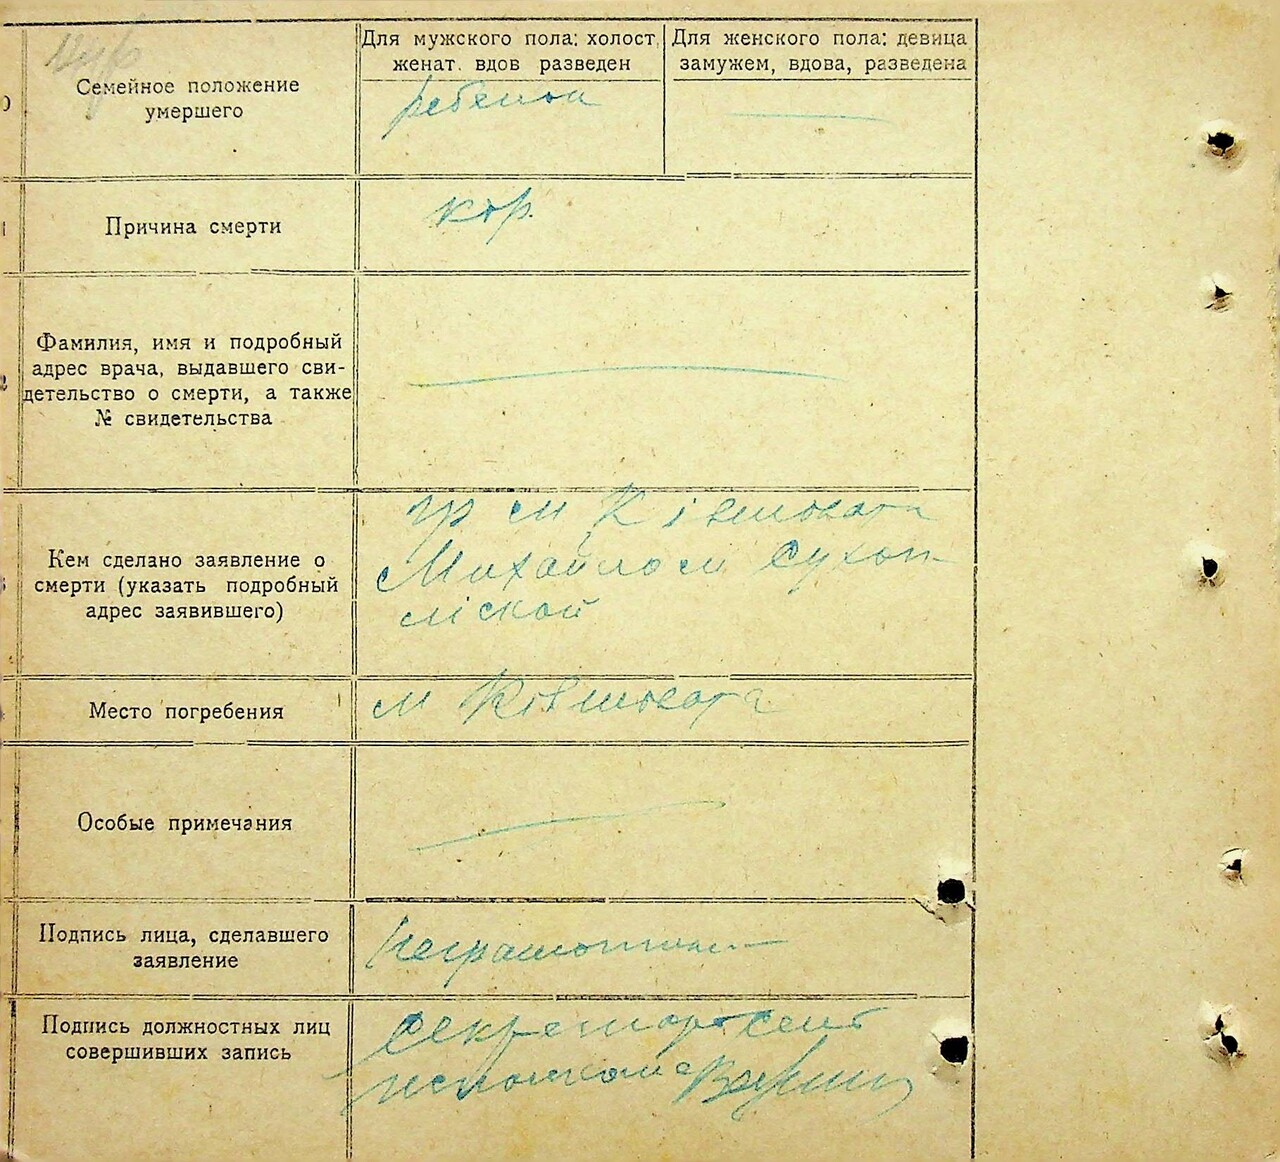 Семейное положение
умершего
Для мужского пола: холост,
женат. вдов разведен
Для женского пола: девица
замужем, вдова, разведена
ребенок
Причина смерти
кор.
Фамилия, имя и подробный
адрес врача, выдавшего сви-
детельство о смерти, а также
№ свидетельства
Кем сделано заявление о
смерти (указать подробный
адрес заявившего)
гр м
Михайлом
ской
Место погребения
м
Особые примечания
Подпись лица, сделавшего
заявление
Неграмотный
Подпись должностных лиц
совершивших запись
Секретарь